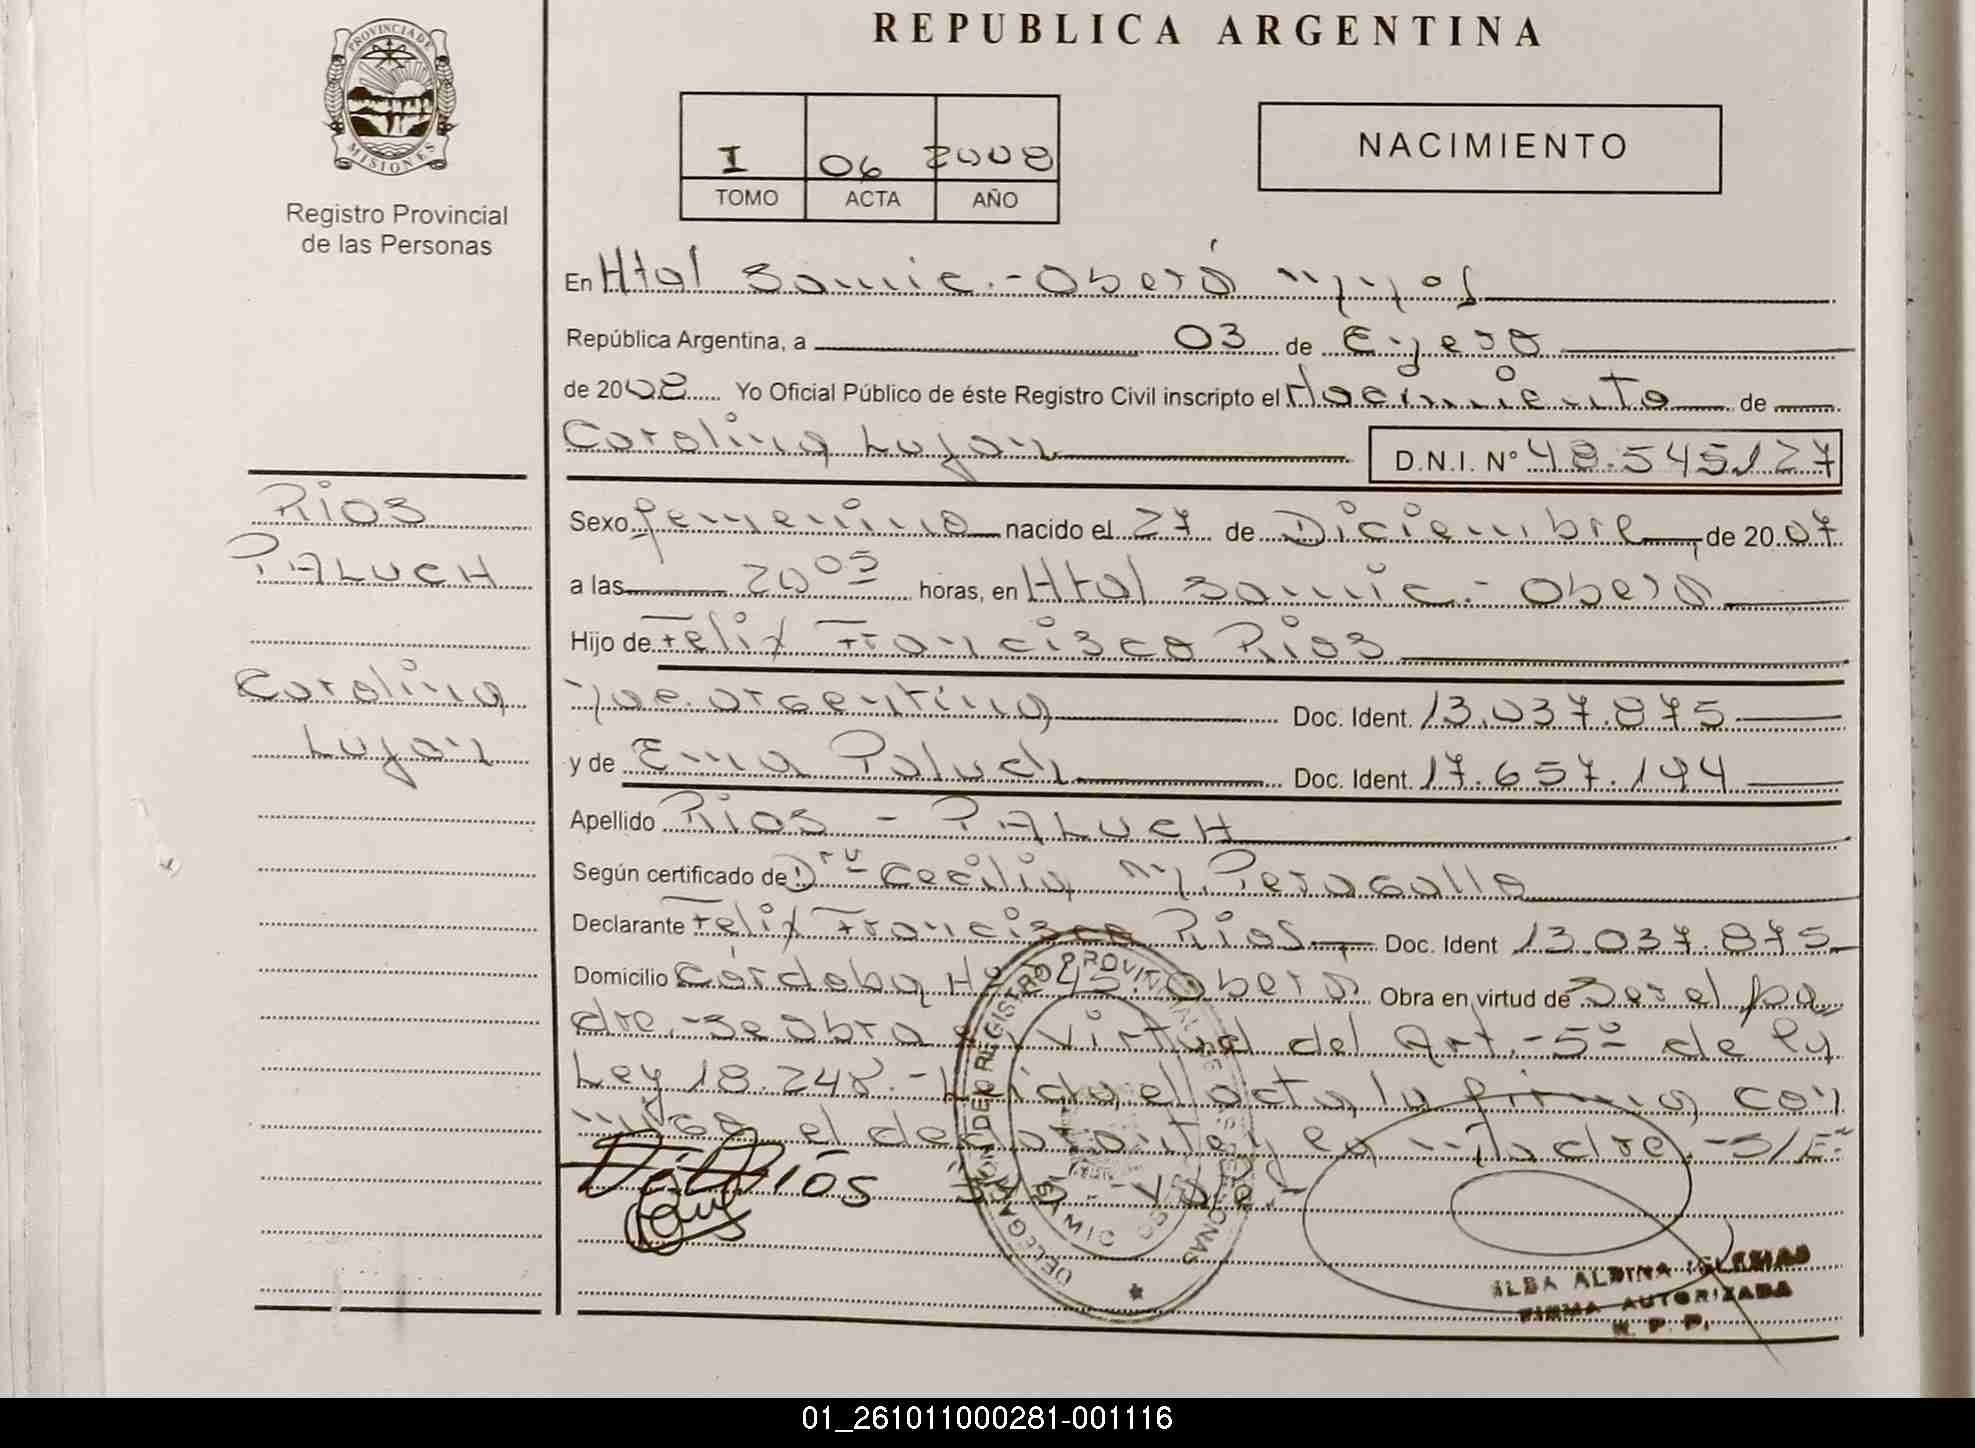 REPUBLICA ARGENTINA
PROVINCIA DE
MISIONES
Registro Provincial
de las Personas
I 06 2008
TOMO ACTA AÑO
NACIMIENTO
En Htal Samic.-Oberá Mnes
República Argentina, a 03 de Enero
de 2008 Yo Oficial Público de éste Registro Civil inscripto el Nacimiento de
Carolina Lujan D.N.I. N° 48.545.127
RIOS
PALUCH
Carolina
Lujan
Sexo femenino nacido el 27 de Diciembre de 2007
a las 20 05 horas, en Htal Samic.- Oberá
Hijo de Felix Francisco Rios
nac. argentina Doc. Ident. 13.037.875
y de Ema Paluch Doc. Ident. 17.657.194
Apellido RIOS - PALUCH
Según certificado de Dra Cecilia M. Peragallo
Declarante Felix Francisco Rios Doc. Ident 13.037.875
Domicilio Córdoba Oberá Obra en virtud de Ser el pa
dre.-Se obra en virtud del Art.-5º de la
Ley 18.248.- Leida el acta la firma con
migo el declarante y la madre.-S/E:
Rios
DELEGACION DEL REGISTRO PROVINCIAL DE LAS PERSONAS
SAMIC
ALBA ALDINA IGLESIAS
FIRMA AUTORIZADA
R. P. P.
01_261011000281-001116